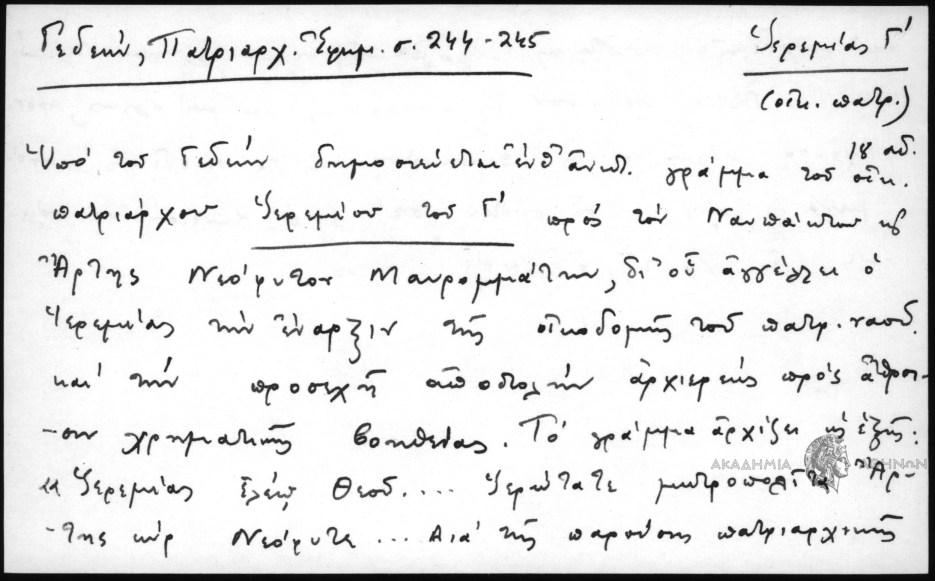 Γεδεών, Πατριαρχ. Ἐφημ. σ. 244-245
Ἱερεμίας Γ΄
(οἰκ. πατρ.)
18 αἰ.
Ὑπό τοῦ Γεδεών δημοσιεύεται ἔνθ᾽ ἀνωτ. γράμμα τοῦ οἰκ.
πατριάρχου Ἱερεμίου τοῦ Γ΄ πρός τόν Ναυπάκτου κ
Ἄρτης Νεόφυτον Μαυρομμάτην, δι᾽ οὗ ἀγγέλλει ὁ
Ἱερεμίας τήν ἔναρξιν τῆς οἰκοδομῆς τοῦ πατρ. ναοῦ
καί τήν προσεχῆ ἀποστολήν ἀρχιερέως πρός ἄθροι-
-σιν χρηματικῆς βοηθείας. Τό γράμμα ἀρχίζει ὡς ἑξῆς:
ΑΚΑΔΗΜΙΑ ΑΘΗΝΩΝ
«Ἱερεμίας ἐλέῳ Θεοῦ.... Ἱερώτατε μητροπολῖτα Ἄρ-
-της κύρ Νεόφυτε... Διά τῆς παρούσης πατριαρχικῆς